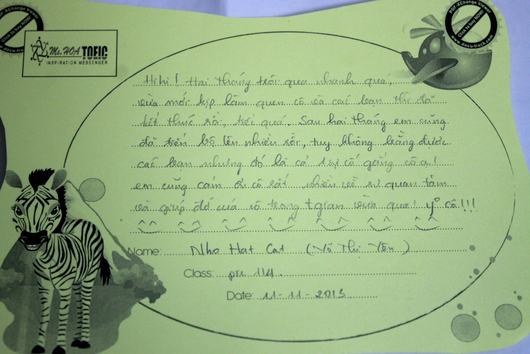 Ms. HOA TOEIC
INSPIRATION MESSENGER
Hihi! Hai tháng trôi qua nhanh quá,
vừa mới kịp làm quen cô và các bạn thì đã
kết thúc rồi, tiếc quá. Sau hai tháng em cũng
đã tiến bộ lên nhiều rồi, tuy không bằng được
các bạn nhưng đó là cả 1 sự cố gắng cô ạ!
em cũng cảm ơn cô rất nhiều về sự quan tâm
và giúp đỡ của cô trong tgian vừa qua! y° cô!!!
Name: Nho Hat Cat (Võ Thị Yên)
Class: pre 114.
Date: 11-11-2013